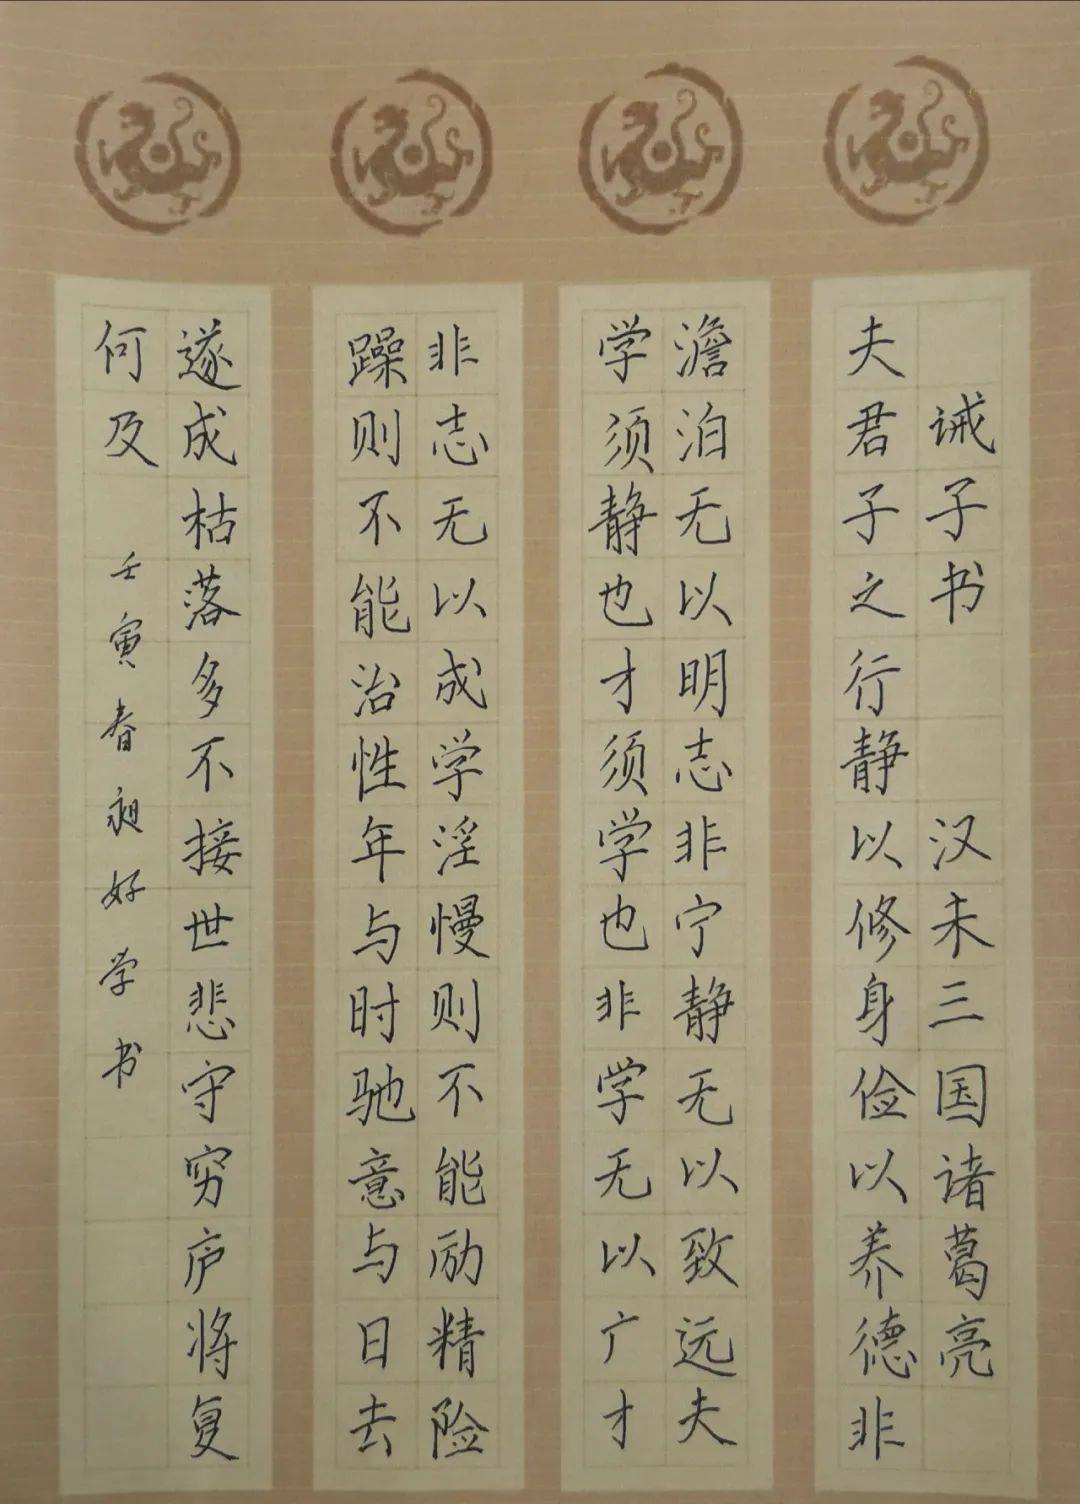 诫子书 汉末三国诸葛亮
夫君子之行静以修身俭以养德非
澹泊无以明志非宁静无以致远夫
学须静也才须学也非学无以广才
非志无以成学淫慢则不能励精险
躁则不能治性年与时驰意与日去
遂成枯落多不接世悲守穷庐将复
何及 壬寅春昶好学书